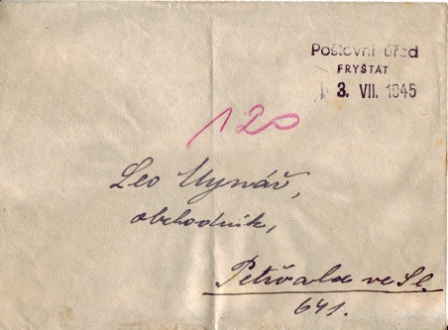 Poštovní úřad
FRYŠTÁT
3. VII. 1945
120
Leo Mynář,
obchodník,
Petřvald ve Sl.
641.